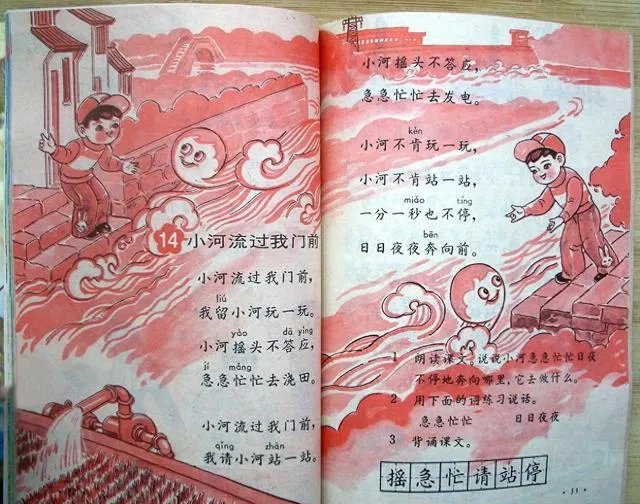 14 小河流过我门前
小河流过我门前，
liú
我留小河玩一玩。
yáo dā yìng
小河摇头不答应，
jí máng
急急忙忙去浇田。
小河流过我门前，
qǐng zhàn
我请小河站一站。
小河摇头不答应，
急急忙忙去发电。
kěn
小河不肯玩一玩，
小河不肯站一站，
miǎo tíng
一分一秒也不停，
bēn
日日夜夜奔向前。
1 朗读课文。说说小河急急忙忙日夜
不停地奔向哪里，它去做什么。
2 用下面的词练习说话。
急急忙忙 日日夜夜
3 背诵课文。
摇急忙请站停